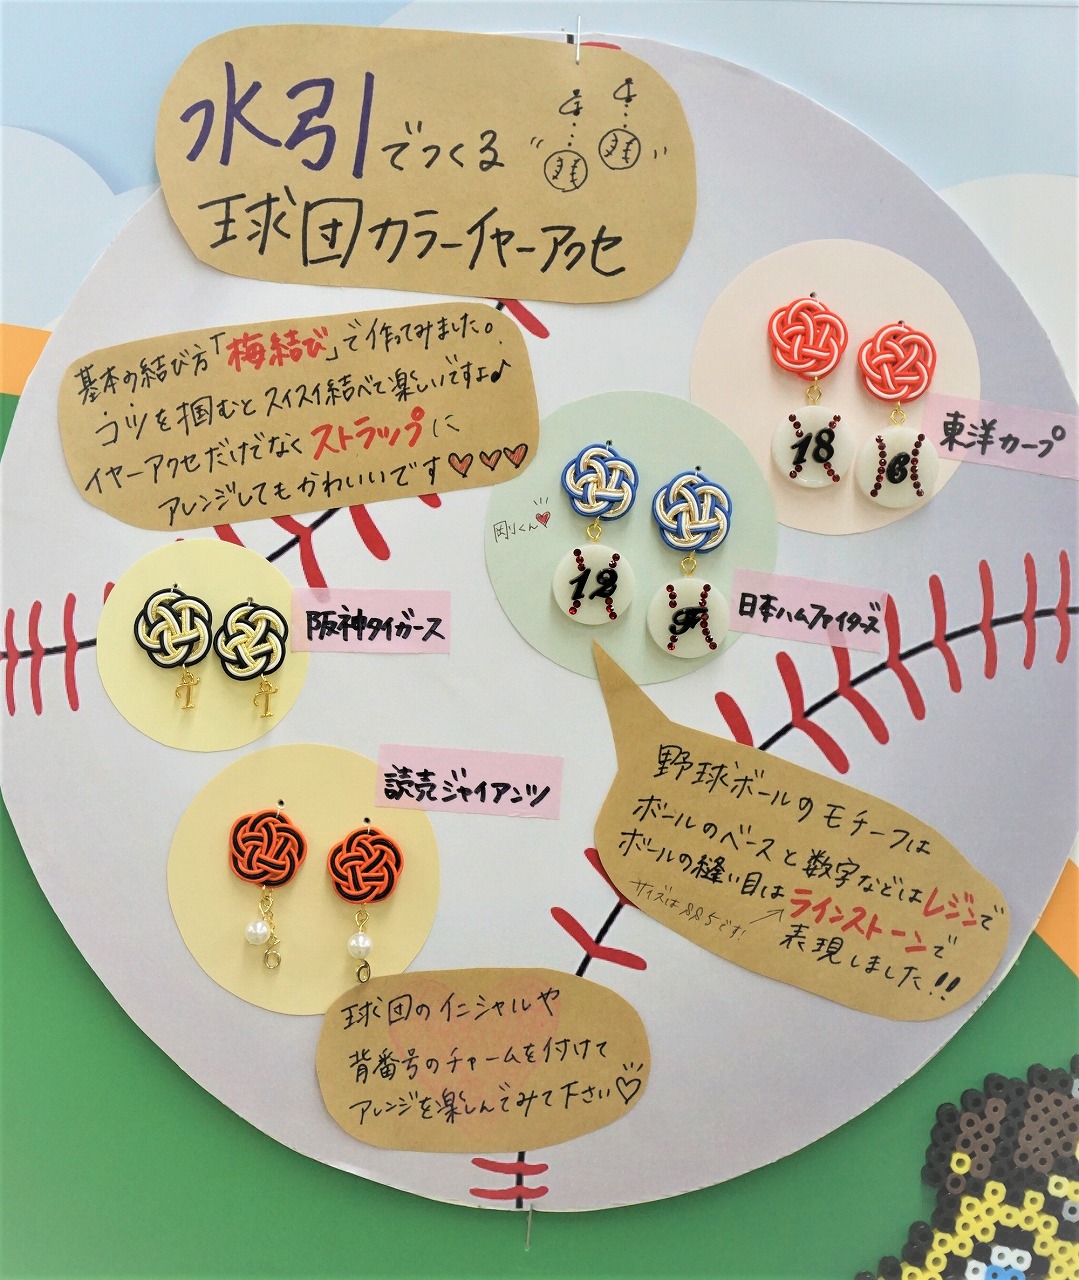 水引でつくる
球団カラーイヤーアクセ
基本の結び方「梅結び」で作ってみました。
コツを掴むとスイスイ結べて楽しいですよ♪
イヤーアクセだけでなくストラップに
アレンジしてもかわいいです♡♡♡
東洋カープ
18
6
剛くん♡
12
F
日本ハムファイターズ
阪神タイガース
T
T
読売ジャイアンツ
野球ボールのモチーフは
ボールのベースと数字などはレジンで
ボールの縫い目はラインストーンで
サイズはss5です!
表現しました!!
球団のイニシャルや
背番号のチャームを付けて
アレンジを楽しんでみて下さい♡